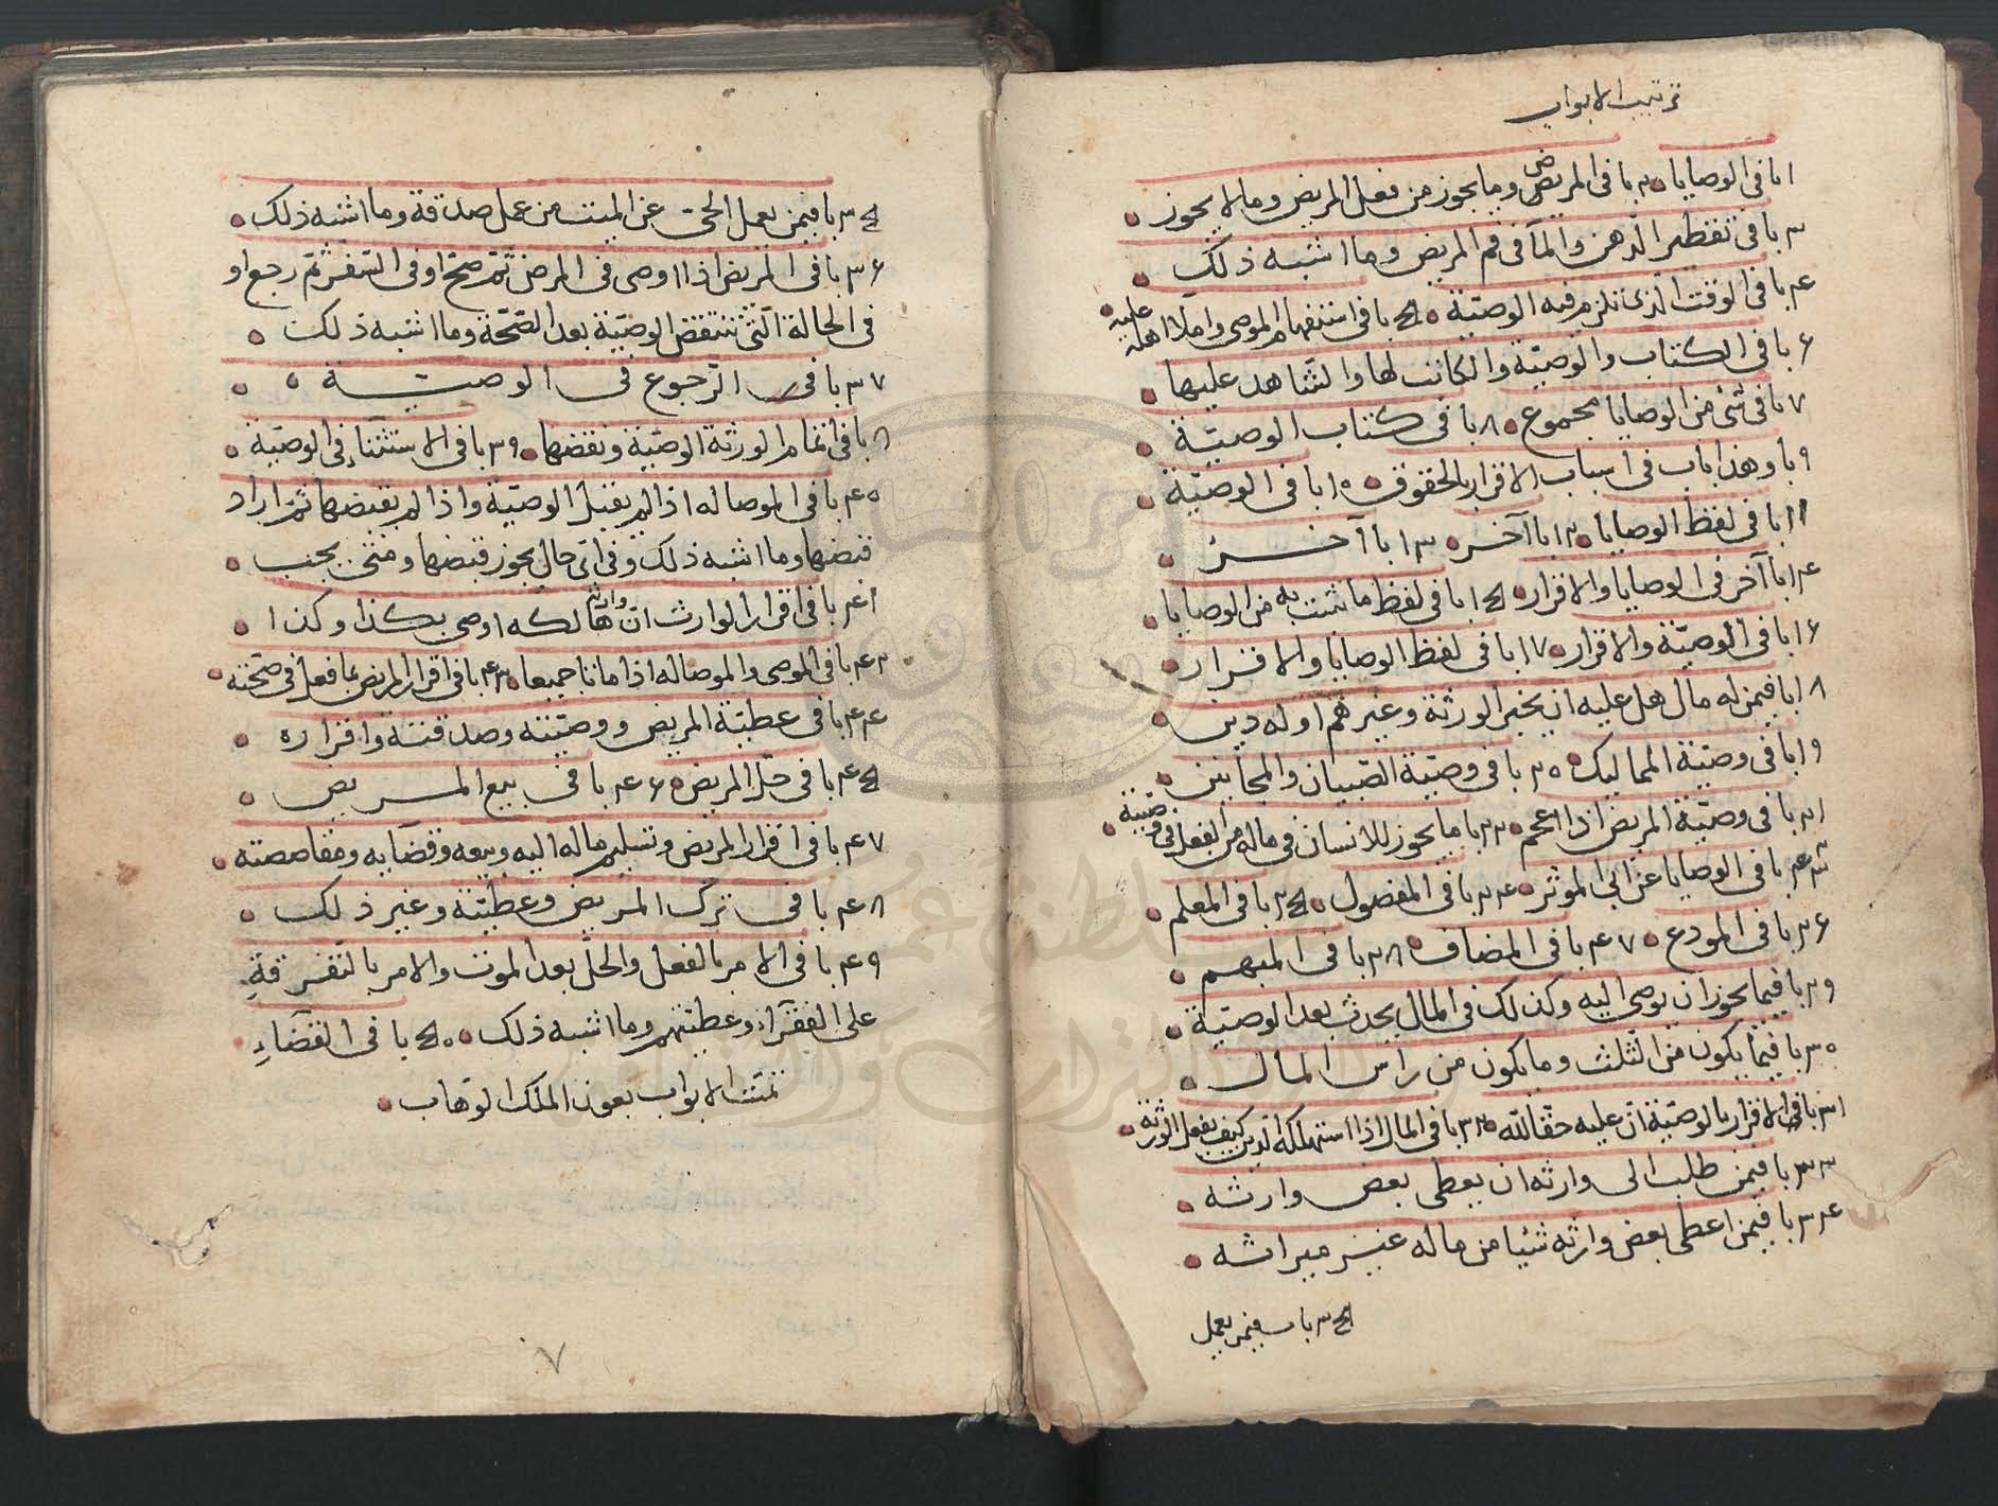 ترتيب الابواب
١ با في الوصايا ٢ با في المريض وما يجوز من فعل المريض وما لا يجوز
٣ با في تقطير الدهن والمآ في فم المريض وما اشبه ذلك
٤ با في الوقت الذي تلزم فيه الوصيّة ٥ با في استفهام الموصي واملا اهله عليه
٦ با في الكتاب والوصيّة والكاتب لها والشّاهد عليها
٧ با في شئ من الوصايا مجموع ٨ با في كتاب الوصيّة
٩ با وهذا باب في اسباب الاقرار بالحقوق ١٠ با في الوصيّة
١١ با في لفظ الوصايا ١٢ با آخر ١٣ با آخر
١٤ با آخر في الوصايا والاقرار ١٥ با في لفظ ما تثبت به من الوصايا
١٦ با في الوصيّة والاقرار ١٧ با في لفظ الوصايا والاقرار
١٨ با فيمن له مال هل عليه ان يخبر الورثة وغيرهم او له دين
١٩ با في وصيّة المماليك ٢٠ با في وصيّة الصّبيان والمجانين
٢١ با في وصيّة المريض اذا اعجم ٢٢ با ما يجوز للانسان في ماله من الفعل في وصيّته
٢٣ با في الوصايا عن ابي الموثر ٢٤ با في المفصول ٢٥ با في المعلم
٢٦ با في المودع ٢٧ با في المضاف ٢٨ با في المبهم
٢٩ با فيما يجوز ان يوصى اليه وكذلك في المال يحدث بعد الوصيّة
٣٠ با فيما يكون من الثلث وما يكون من راس المال
٣١ با في الاقرار بالوصيّة ان عليه حقّا لله ٣٢ با في المال اذا استهلكه الدين كيف يفعل الورثة
٣٣ با فيمن طلب الى وارثه ان يعطي بعض وارثه
٣٤ با فيمن اعطى بعض وارثه شيئا من ماله غير ميراثه
٣٥ باب فيمن يعمل
٣٥ با فيمن يعمل الحي عن الميت من عمل صدقة وما اشبه ذلك
٣٦ با في المريض اذا اوصى في المرض ثمّ صحّ او في السّفر ثمّ رجع او
في الحالة الّتي تنتقض الوصيّة بعد الصّحّة وما اشبه ذلك
٣٧ با في الرّجوع في الوصية
٨ با في اتمام الورثة الوصيّة ونقضها ٣٩ با في الاستثناء في الوصيّة
٤٠ با في الموصا له اذا لم يقبل الوصيّة واذا لم يقبضها ثمّ اراد
قبضها وما اشبه ذلك وفي ايّ حال يجوز قبضها ومتى يجب
٤١ با في اقرار الوارث انّ وارثه هالكه اوصى بكذا وكذا
٤٢ با في الموصي والموصا له اذا ماتا جميعا ٤٣ با في اقرار المريض بما فعل في صحّته
٤٤ با في عطيّة المريض ووصيّته وصدقته واقراره
٤٥ با في حلّ المريض ٤٦ با في بيع المريض
٤٧ با في اقرار المريض وتسليم ماله اليه وبيعه وقضايه ومقاصصته
٤٨ با في ترك المريض وعطيّته وغير ذلك
٤٩ با في الامر بالفعل والحلّ بعد الموت والامر بالتّفرقة
على الفقرآء وعطيتهم وما اشبه ذلك ٥٠ با في القضاءِ
تمّت الابواب بعون الملك الوهاب
٧